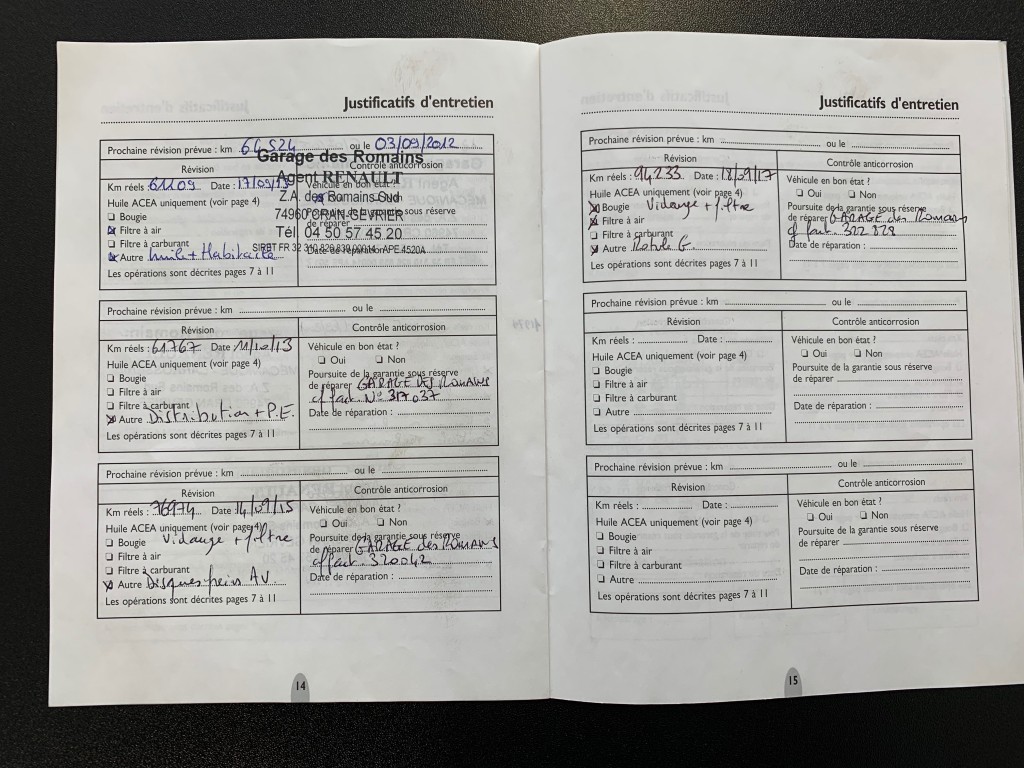 Justificatifs d'entretien
Prochaine révision prévue : km 64 524 ou le 03/09/2012
Garage des Romains
Révision
Contrôle anticorrosion
Agent RENAULT
Km réels : 61109 Date : 17/09/13
Véhicule en bon état ?
Huile ACEA uniquement (voir page 4)
Z.A. des Romains Sud
Bougie
74960 CRAN-GEVRIER
Poursuite de la garantie sous réserve
de réparer
Filtre à air
Tél. 04 50 57 45 20
Filtre à carburant
SIRET FR 32 310 839 839 00014 - APE 4520A
Date de réparation :
Autre huile + Habitacle
Les opérations sont décrites pages 7 à 11
Prochaine révision prévue : km ou le
Révision
Contrôle anticorrosion
Km réels : 61767 Date 11/10/13
Véhicule en bon état ?
Huile ACEA uniquement (voir page 4)
Oui Non
Bougie
Poursuite de la garantie sous réserve
Filtre à air
de réparer GARAGE DES ROMAINS
Filtre à carburant
cf fact. N° 317037
Autre Distribution + P.E.
Date de réparation :
Les opérations sont décrites pages 7 à 11
Prochaine révision prévue : km ou le
Révision
Contrôle anticorrosion
Km réels : 76974 Date 14/09/15
Véhicule en bon état ?
Huile ACEA uniquement (voir page 4)
Oui Non
Bougie Vidange + filtre
Poursuite de la garantie sous réserve
Filtre à air
de réparer GARAGE des ROMAINS
Filtre à carburant
cf fact. 320042
Autre Disques freins AV
Date de réparation :
Les opérations sont décrites pages 7 à 11
14
Justificatifs d'entretien
Prochaine révision prévue : km ou le
Révision
Contrôle anticorrosion
Km réels : 94233 Date : 18/09/17
Véhicule en bon état ?
Huile ACEA uniquement (voir page 4)
Oui Non
Bougie Vidange + filtre
Poursuite de la garantie sous réserve
Filtre à air
de réparer GARAGE des ROMAINS
Filtre à carburant
cf fact. 322828
Autre Rotule G.
Date de réparation :
Les opérations sont décrites pages 7 à 11
Prochaine révision prévue : km ou le
Révision
Contrôle anticorrosion
Km réels : Date :
Véhicule en bon état ?
Huile ACEA uniquement (voir page 4)
Oui Non
Bougie
Poursuite de la garantie sous réserve
Filtre à air
de réparer
Filtre à carburant
Autre
Date de réparation :
Les opérations sont décrites pages 7 à 11
Prochaine révision prévue : km ou le
Révision
Contrôle anticorrosion
Km réels : Date :
Véhicule en bon état ?
Huile ACEA uniquement (voir page 4)
Oui Non
Bougie
Poursuite de la garantie sous réserve
Filtre à air
de réparer
Filtre à carburant
Autre
Date de réparation :
Les opérations sont décrites pages 7 à 11
15